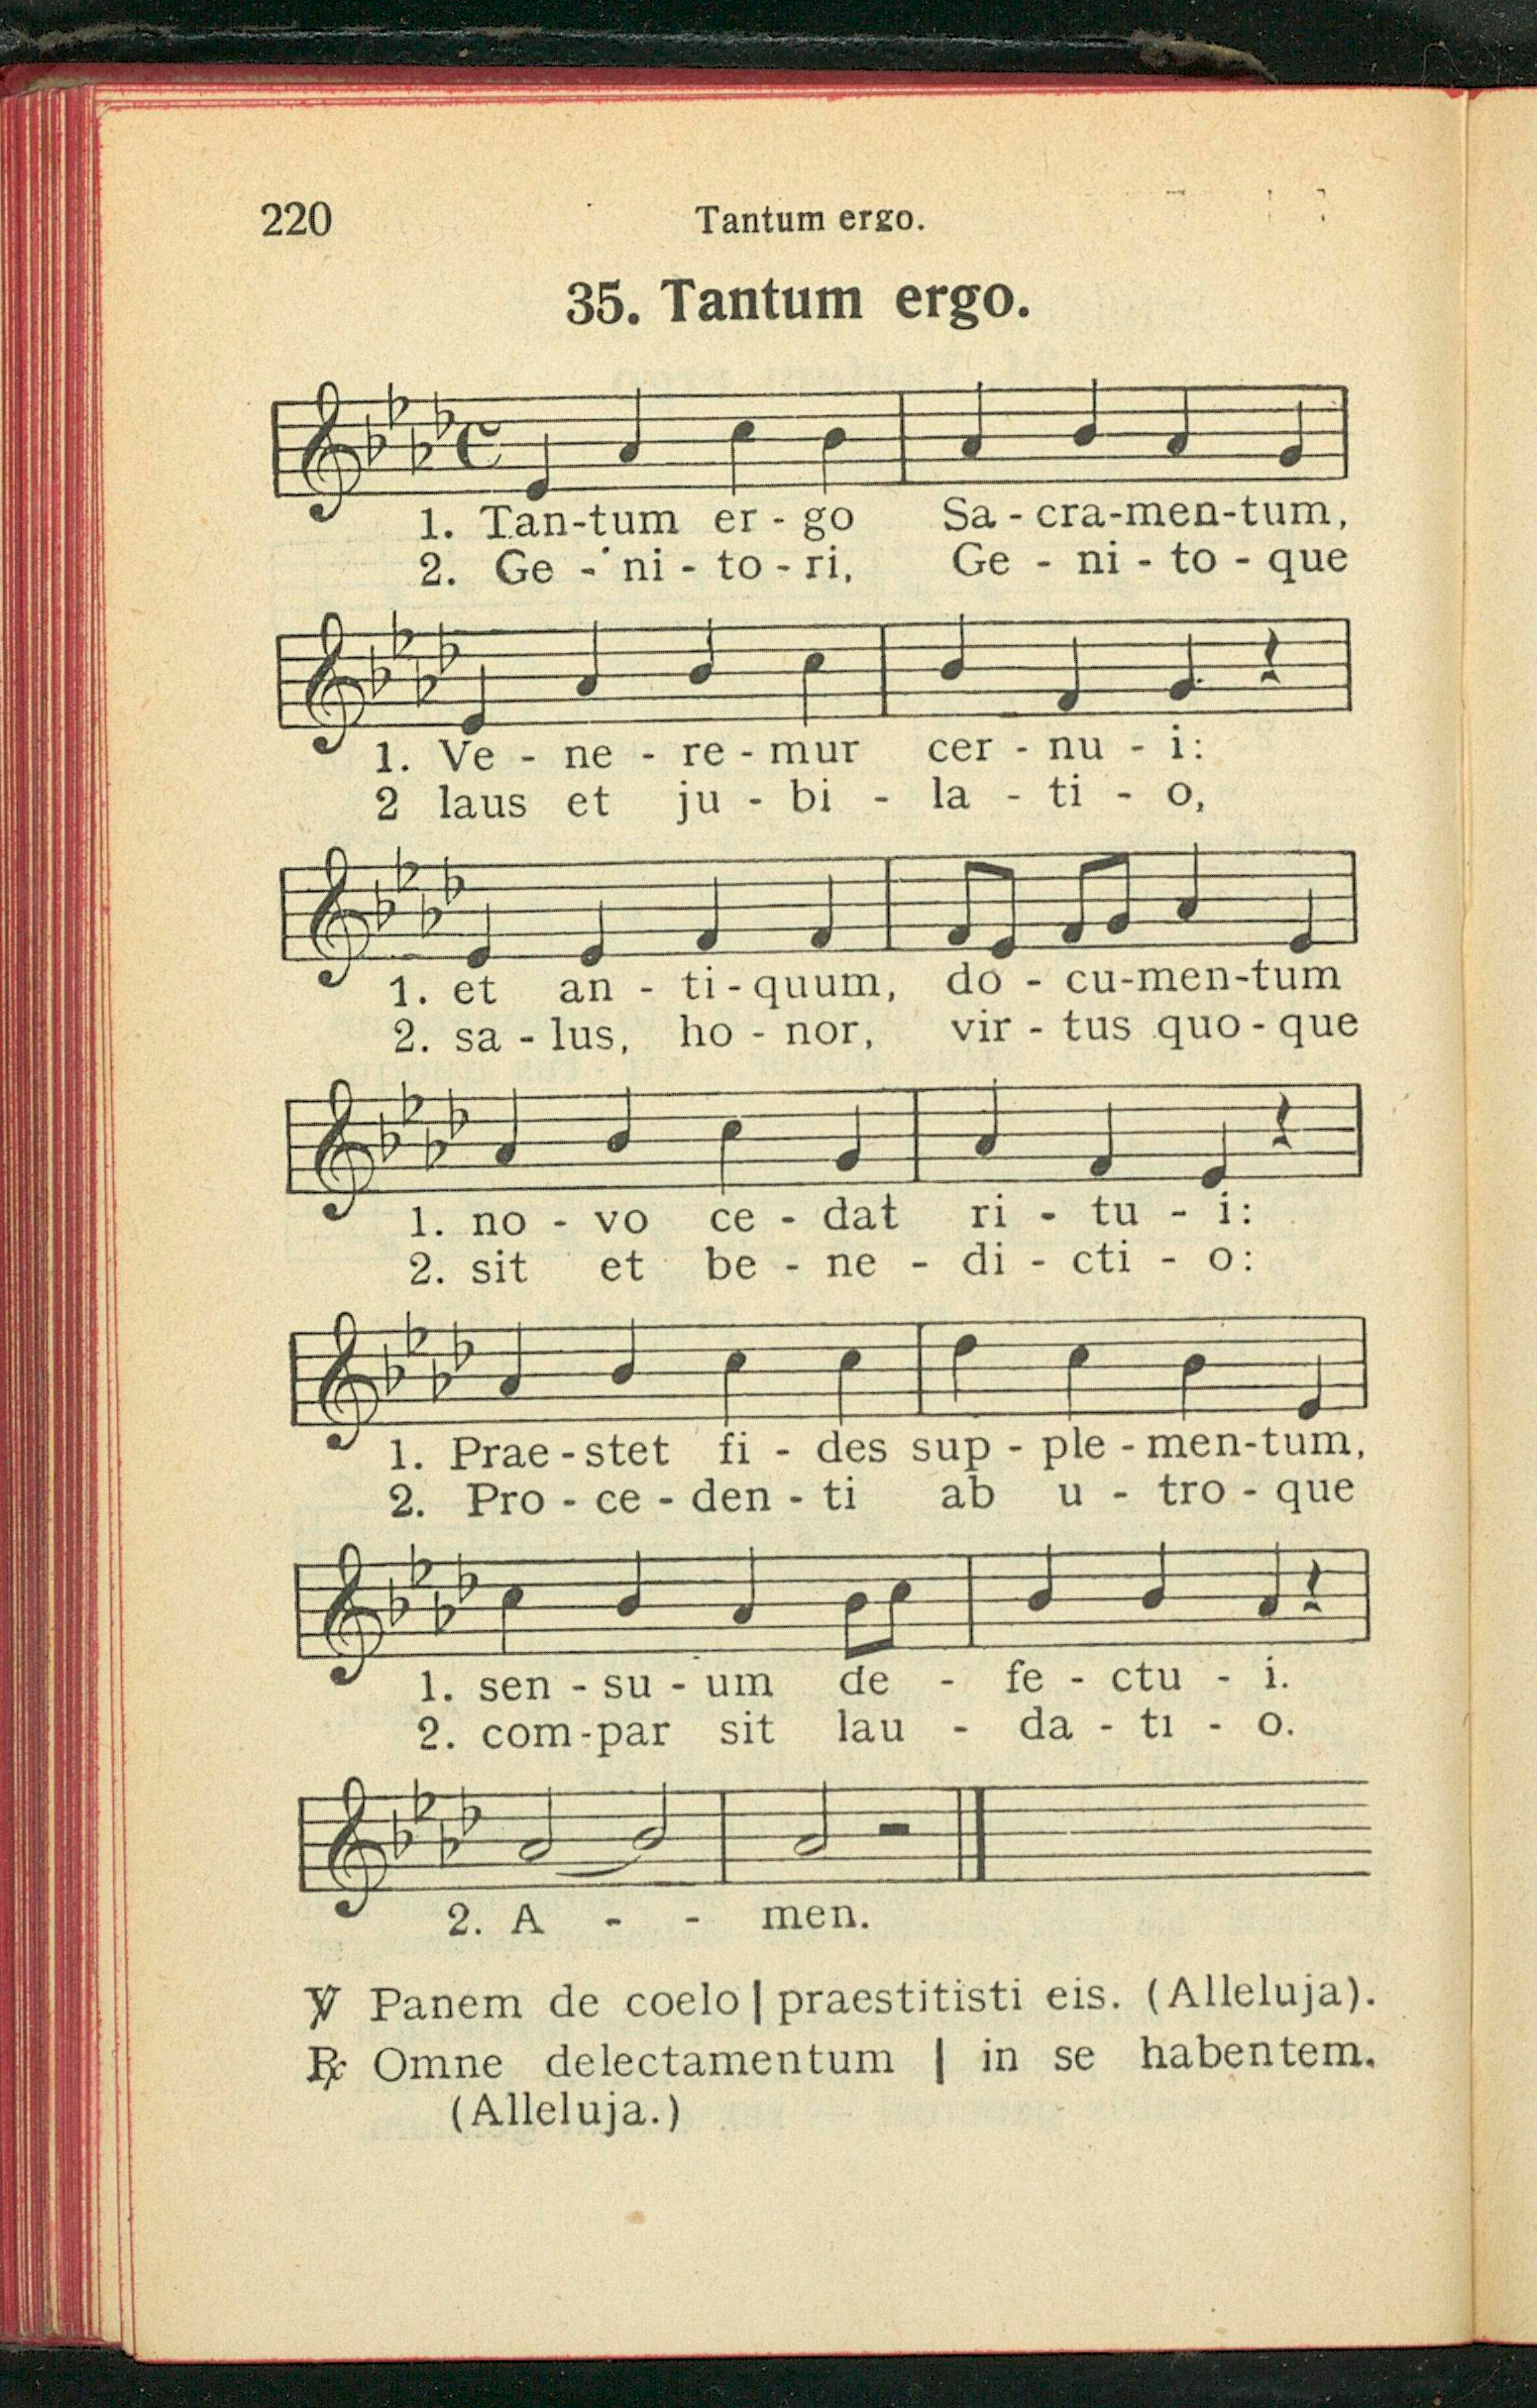 220
Tantum ergo.
35. Tantum ergo.
1. Tan-tum er - go Sa - cra-men-tum,
2. Ge - ni - to - ri, Ge - ni - to - que
1. Ve - ne - re - mur cer - nu - i:
2 laus et ju - bi - la - ti - o,
1. et an - ti - quum, do - cu-men-tum
2. sa - lus, ho - nor, vir - tus quo - que
1. no - vo ce - dat ri - tu - i:
2. sit et be - ne - di - cti - o:
1. Prae - stet fi - des sup - ple - men-tum,
2. Pro - ce - den - ti ab u - tro - que
1. sen - su - um de - fe - ctu - i.
2. com - par sit lau - da - ti - o.
2. A - - men.
℣ Panem de coelo | praestitisti eis. (Alleluja).
℟ Omne delectamentum | in se habentem.
(Alleluja.)